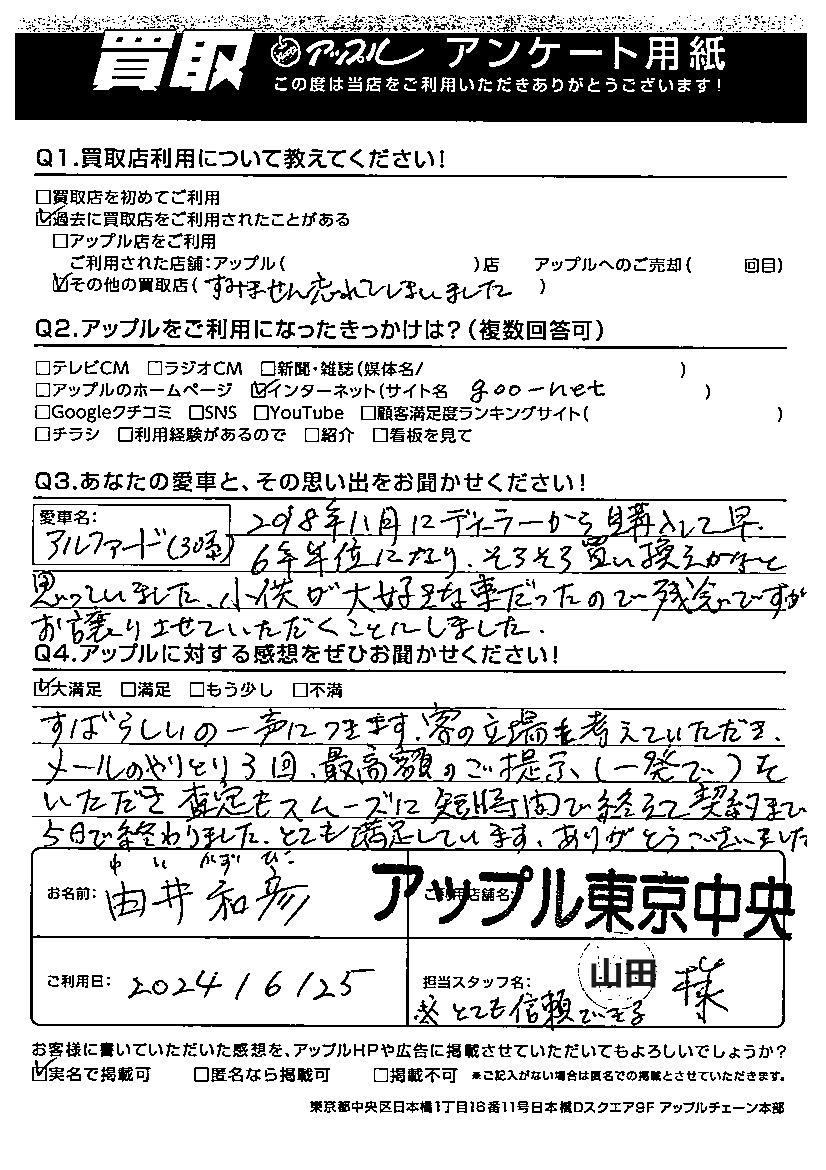 買取 アップル アンケート用紙
この度は当店をご利用いただきありがとうございます!
Q1.買取店利用について教えてください!
□買取店を初めてご利用
☑過去に買取店をご利用されたことがある
□アップル店をご利用
ご利用された店舗:アップル( )店 アップルへのご売却( 回目)
☑その他の買取店(すみません忘れてしまいました )
Q2.アップルをご利用になったきっかけは?(複数回答可)
□テレビCM □ラジオCM □新聞・雑誌(媒体名/ )
□アップルのホームページ ☑インターネット(サイト名 goo-net )
□Googleクチコミ □SNS □YouTube □顧客満足度ランキングサイト( )
□チラシ □利用経験があるので □紹介 □看板を見て
Q3.あなたの愛車と、その思い出をお聞かせください!
愛車名:
アルファード(30系) 2018年11月にディーラーから購入して早.
6年半位になり、そろそろ買い換えかなと
思っていました、小供が大好きな車だったので残念ですが
お譲りさせていただくことにしました.
Q4.アップルに対する感想をぜひお聞かせください!
☑大満足 □満足 □もう少し □不満
すばらしいの一声につきます.客の立場も考えていただき、
メールのやりとり3回、最高額のご提示、(一発で)を
いただき査定もスムーズに短時間で終えて契約まで
5日で終わりました.とても満足しています、ありがとうございました
ゆい かずひこ
お名前: 由井 和彦 ご利用店舗名: アップル東京中央
ご利用日: 2024/6/25 担当スタッフ名: 山田 様
※とても信頼できる
お客様に書いていただいた感想を、アップルHPや広告に掲載させていただいてもよろしいでしょうか?
☑実名で掲載可 □匿名なら掲載可 □掲載不可 ※ご記入がない場合は匿名での掲載とさせていただきます。
東京都中央区日本橋1丁目16番11号日本橋Dスクエア9F アップルチェーン本部